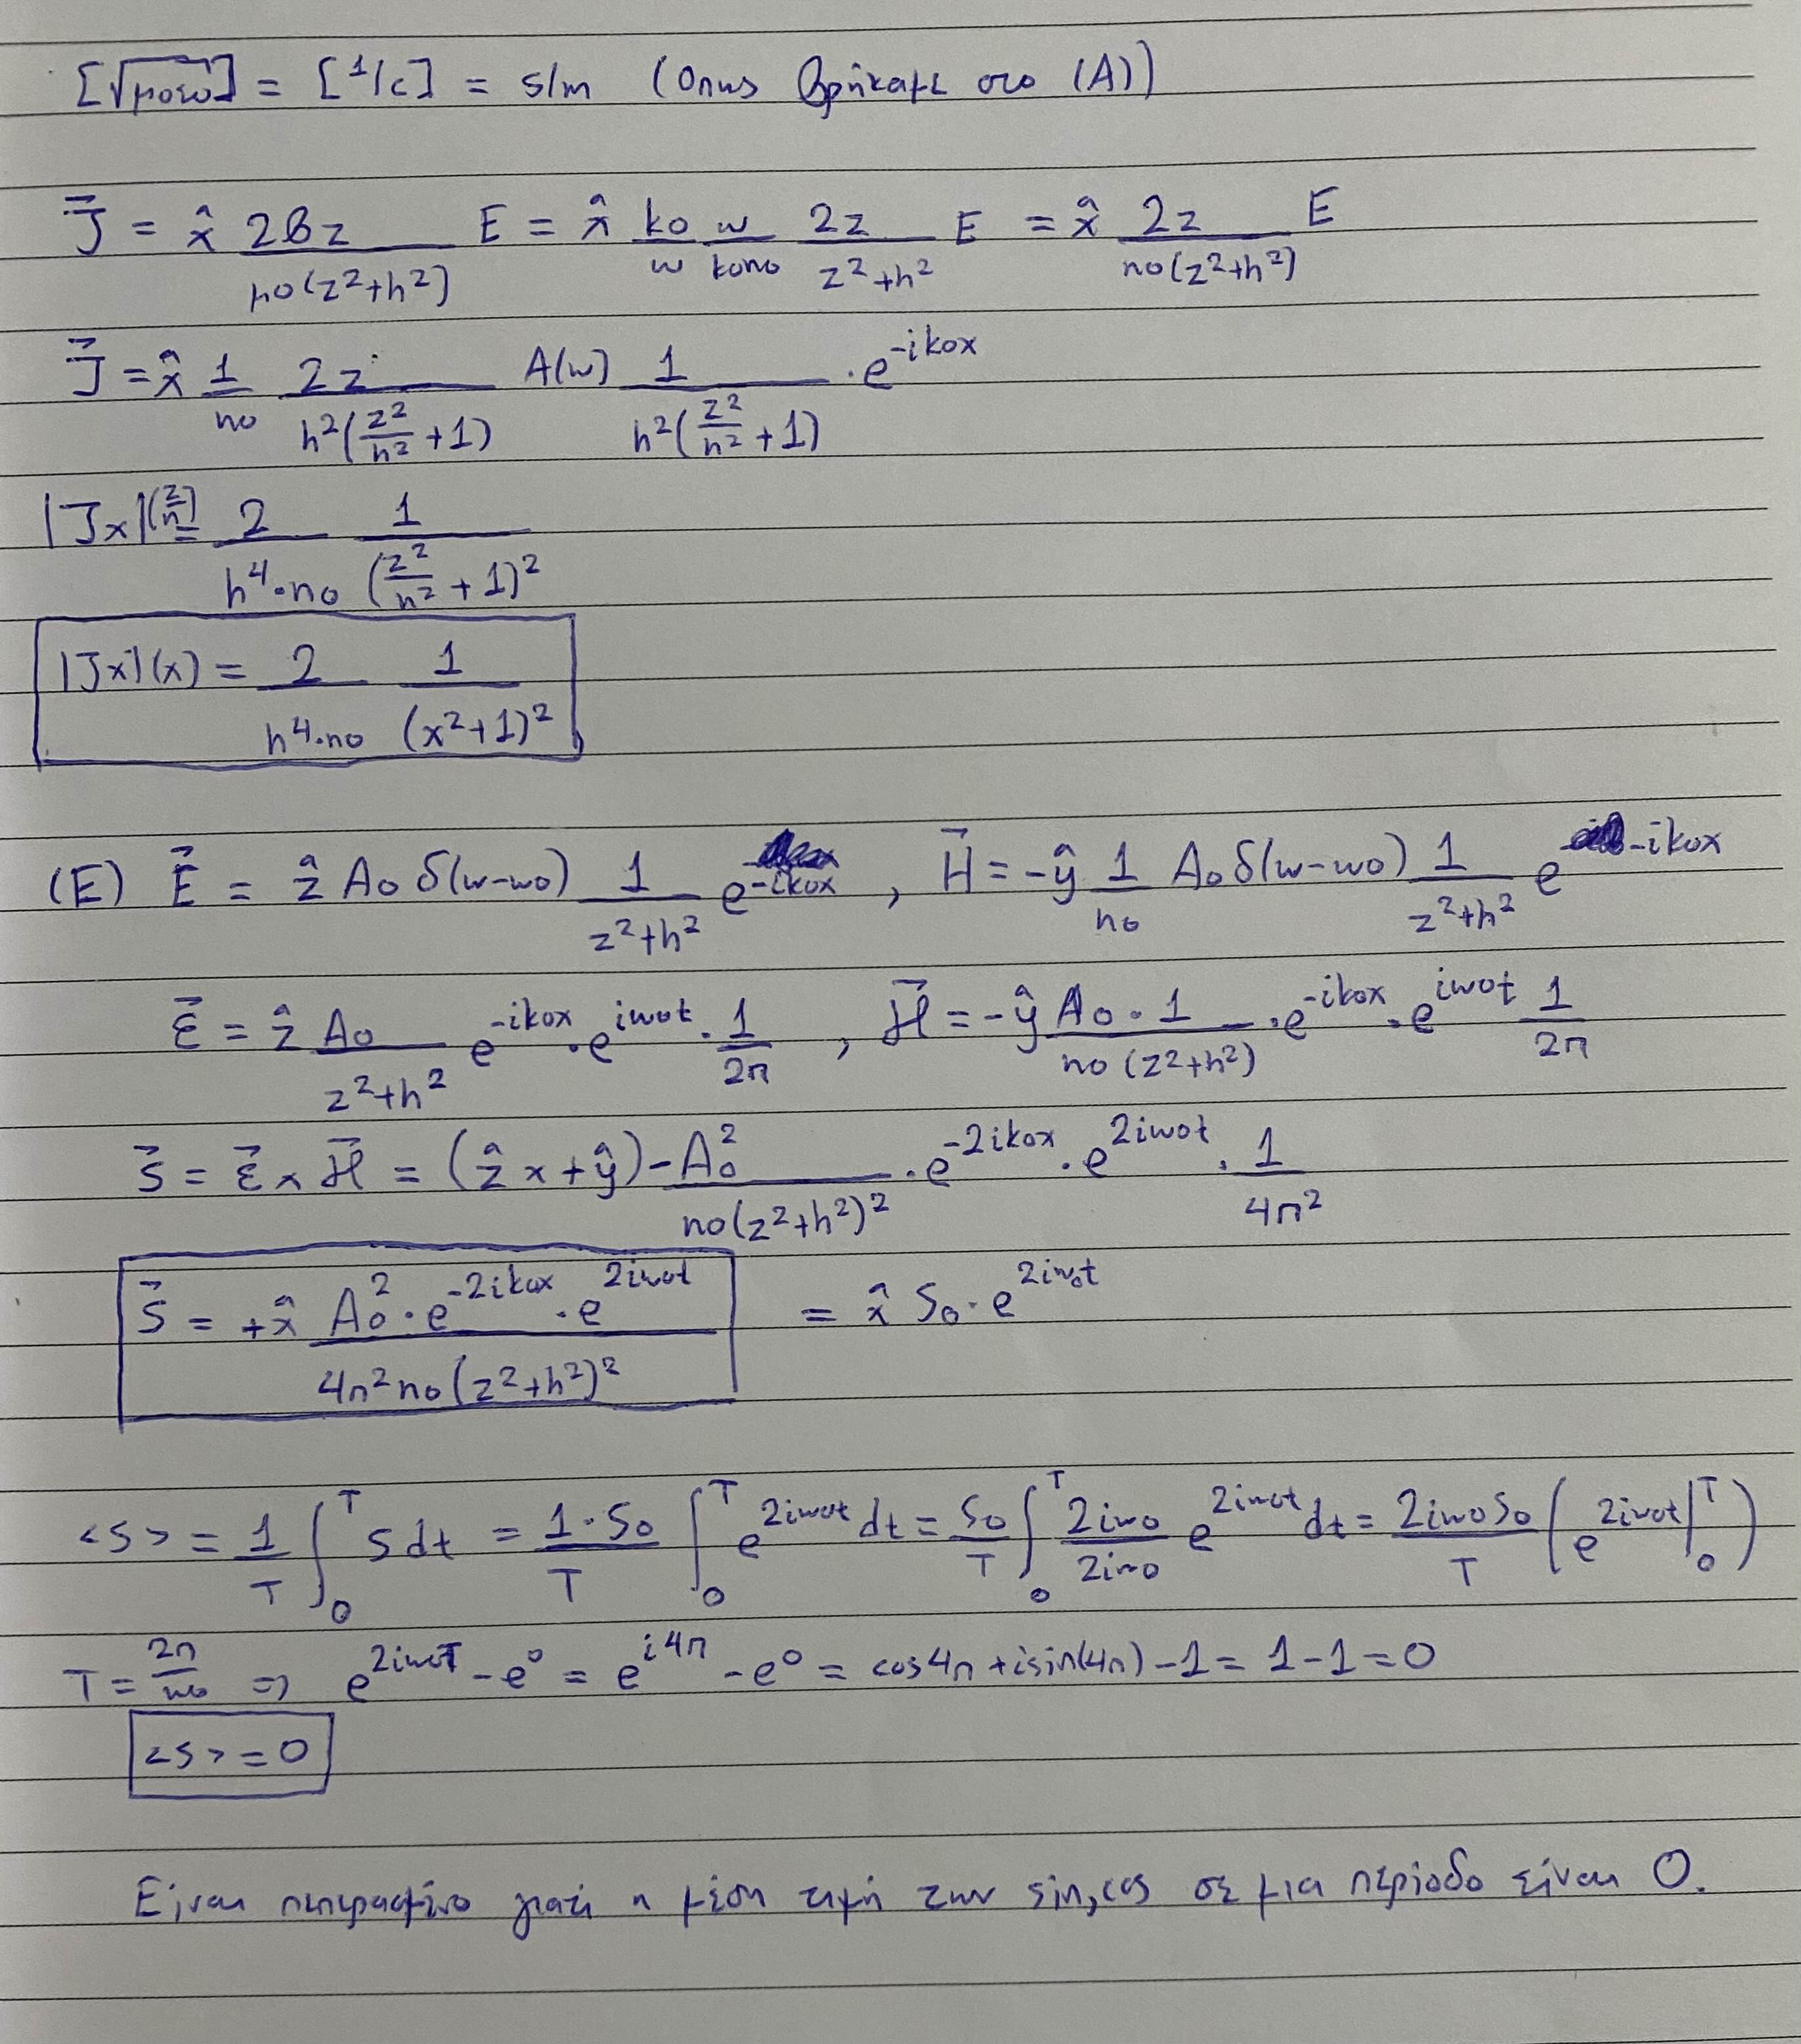 [√μ0ε0] = [1/c] = s/m (Όπως βρήκαμε στο (A))
J⃗ = x̂ 2Bz / μ0(z²+h²) E = x̂ k0/ω ω/k0n0 2z/(z²+h²) E = x̂ 2z / n0(z²+h²) E
J⃗ = x̂ 1/n0 2z / h²(z²/h² + 1) A(ω) 1 / h²(z²/h² + 1) · e^{-ik0x}
|Jx|(z/h) = 2 / h⁴·n0 1 / (z²/h² + 1)²
|Jx|(x) = 2 / h⁴·n0 1 / (x²+1)²
(E) E⃗ = ẑ A0 δ(ω-ω0) 1 / (z²+h²) e^{-ik0x} , H⃗ = -ŷ 1/n0 A0 δ(ω-ω0) 1 / (z²+h²) e^{-ik0x}
ℰ⃗ = ẑ A0 / (z²+h²) e^{-ik0x} · e^{iω0t} · 1/2π , ℋ⃗ = -ŷ A0 · 1 / n0(z²+h²) · e^{-ik0x} · e^{iω0t} 1/2π
S⃗ = ℰ⃗ × ℋ⃗ = (ẑ × +ŷ) - A0² / n0(z²+h²)² · e^{-2ik0x} · e^{2iω0t} · 1/4π²
S⃗ = +x̂ A0² · e^{-2ik0x} · e^{2iω0t} / 4π²n0(z²+h²)² = x̂ S0 · e^{2iω0t}
<S> = 1/T ∫₀ᵀ S dt = 1·S0/T ∫₀ᵀ e^{2iω0t} dt = S0/T ∫₀ᵀ 2iω0/2iω0 e^{2iω0t} dt = 2iω0S0/T (e^{2iω0t}|₀ᵀ)
T = 2π/ω0 => e^{2iω0T} - e⁰ = e^{i4π} - e⁰ = cos4π + isin(4π) - 1 = 1 - 1 = 0
<S> = 0
Είναι πεπερασμένο γιατί η μέση τιμή των sin, cos σε μια περίοδο είναι 0.